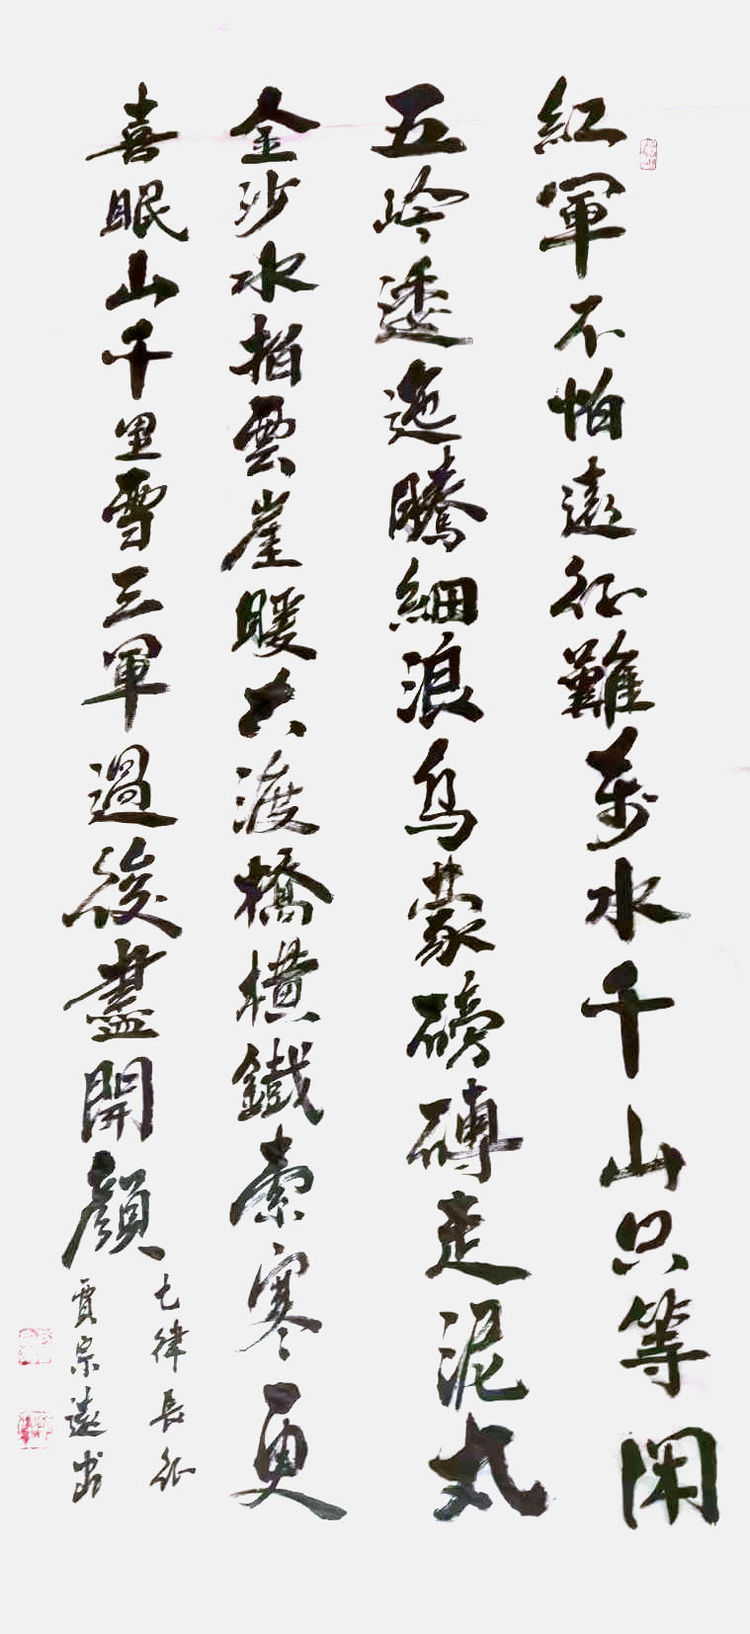 紅軍不怕遠征難萬水千山只等閑
五岭逶迤騰細浪烏蒙磅礴走泥丸
金沙水拍雲崖暖大渡橋橫鐵索寒更
喜眠山千里雪三軍過後盡開顏
七律長征
賈宗遠書